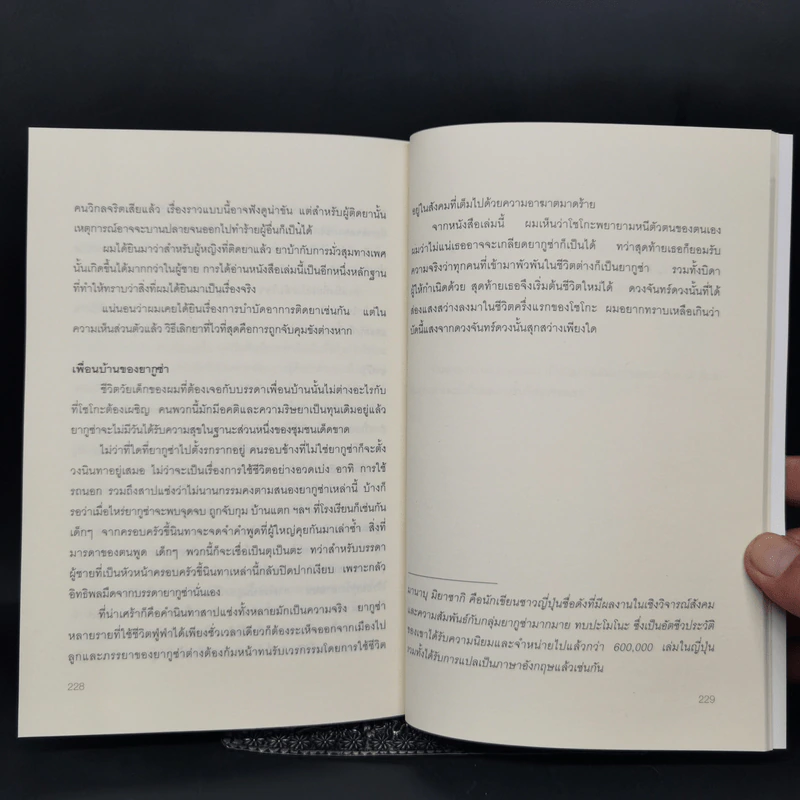 คนวิกลจริตเสียแล้ว เรื่องราวแบบนี้อาจฟังดูน่าขัน แต่สำหรับผู้ติดยานั้น
เหตุการณ์อาจจะบานปลายจนออกไปทำร้ายผู้อื่นก็เป็นได้
ผมได้ยินมาว่าสำหรับผู้หญิงที่ติดยาแล้ว ยาบ้ากับการมั่วสุมทางเพศ
นั้นเกิดขึ้นได้มากกว่าในผู้ชาย การได้อ่านหนังสือเล่มนี้เป็นอีกหนึ่งหลักฐาน
ที่ทำให้ทราบว่าสิ่งที่ผมได้ยินมาเป็นเรื่องจริง
แน่นอนว่าผมเคยได้ยินเรื่องการบำบัดอาการติดยาเช่นกัน แต่ใน
ความเห็นส่วนตัวแล้ว วิธีเลิกยาที่ไวที่สุดคือการถูกจับคุมขังต่างหาก
เพื่อนบ้านของยากูซ่า
ชีวิตวัยเด็กของผมที่ต้องเจอกับบรรดาเพื่อนบ้านนั้นไม่ต่างอะไรกับ
ที่โชโกะต้องเผชิญ คนพวกนี้มักมีอคติและความริษยาเป็นทุนเดิมอยู่แล้ว
ยากูซ่าจะไม่มีวันได้รับความสุขในฐานะส่วนหนึ่งของชุมชนเด็ดขาด
ไม่ว่าที่ใดที่ยากูซ่าไปตั้งรกรากอยู่ คนรอบข้างที่ไม่ใช่ยากูซ่าก็จะตั้ง
วงนินทาอยู่เสมอ ไม่ว่าจะเป็นเรื่องการใช้ชีวิตอย่างอวดเบ่ง อาทิ การใช้
รถนอก รวมถึงสาปแช่งว่าไม่นานกรรมคงตามสนองยากูซ่าเหล่านี้ บ้างก็
รอว่าเมื่อไหร่ยากูซ่าจะพบจุดจบ ถูกจับกุม บ้านแตก ฯลฯ ที่โรงเรียนก็เช่นกัน
เด็กๆ จากครอบครัวขี้นินทาจะจดจำคำพูดที่ผู้ใหญ่คุยกันมาเล่าซ้ำ สิ่งที่
มารดาของตนพูด เด็กๆ พวกนี้ก็จะเชื่อเป็นตุเป็นตะ ทว่าสำหรับบรรดา
ผู้ชายที่เป็นหัวหน้าครอบครัวขี้นินทาเหล่านี้กลับปิดปากเงียบ เพราะกลัว
อิทธิพลมืดจากบรรดายากูซ่านั่นเอง
ที่น่าเศร้าก็คือคำนินทาสาปแช่งทั้งหลายมักเป็นความจริง ยากูซ่า
หลายรายที่ใช้ชีวิตฟู่ฟ่าได้เพียงชั่วเวลาเดียวก็ต้องระเห็จออกจากเมืองไป
ลูกและภรรยาของยากูซ่าต่างต้องก้มหน้าทนรับเวรกรรมโดยการใช้ชีวิต
228
อยู่ในสังคมที่เต็มไปด้วยความอาฆาตมาดร้าย
จากหนังสือเล่มนี้ ผมเห็นว่าโชโกะพยายามหนีตัวตนของตนเอง
ผมว่าไม่แน่เธออาจจะเกลียดยากูซ่าก็เป็นได้ ทว่าสุดท้ายเธอก็ยอมรับ
ความจริงว่าทุกคนที่เข้ามาพัวพันในชีวิตต่างก็เป็นยากูซ่า รวมทั้งบิดา
ผู้ให้กำเนิดด้วย สุดท้ายเธอจึงเริ่มต้นชีวิตใหม่ได้ ดวงจันทร์ดวงนั้นที่ได้
ส่องแสงสว่างลงมาในชีวิตครึ่งแรกของโชโกะ ผมอยากทราบเหลือเกินว่า
บัดนี้แสงจากดวงจันทร์ดวงนั้นสุกสว่างเพียงใด
มานาบุ มิยาซากิ คือนักเขียนชาวญี่ปุ่นชื่อดังที่มีผลงานในเชิงวิจารณ์สังคม
และความสัมพันธ์กับกลุ่มยากูซ่ามากมาย ทบปะโมโนะ ซึ่งเป็นอัตชีวประวัติ
ของเขาได้รับความนิยมและจำหน่ายไปแล้วกว่า 600,000 เล่มในญี่ปุ่น
รวมทั้งได้รับการแปลเป็นภาษาอังกฤษแล้วเช่นกัน
229